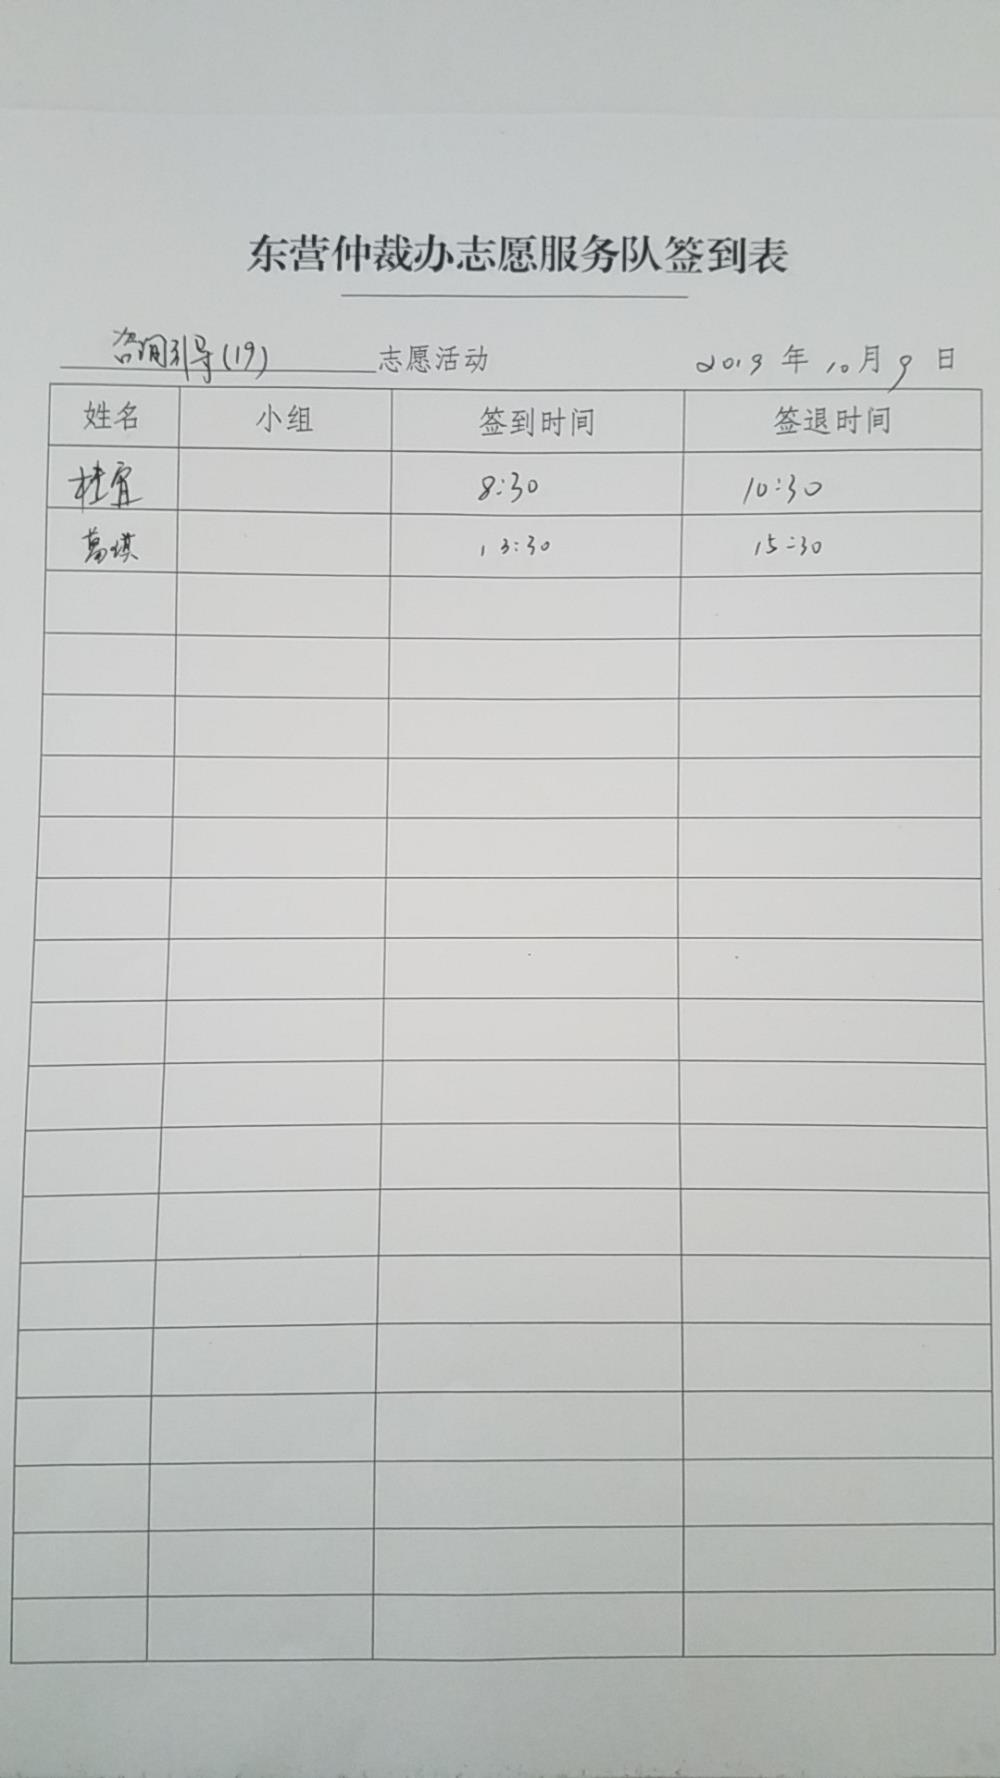 东营仲裁办志愿服务队签到表
咨询引导(19) 志愿活动 2019 年 10 月 9 日
姓名 小组 签到时间 签退时间
桂宜 8:30 10:30
葛祺 13:30 15:30